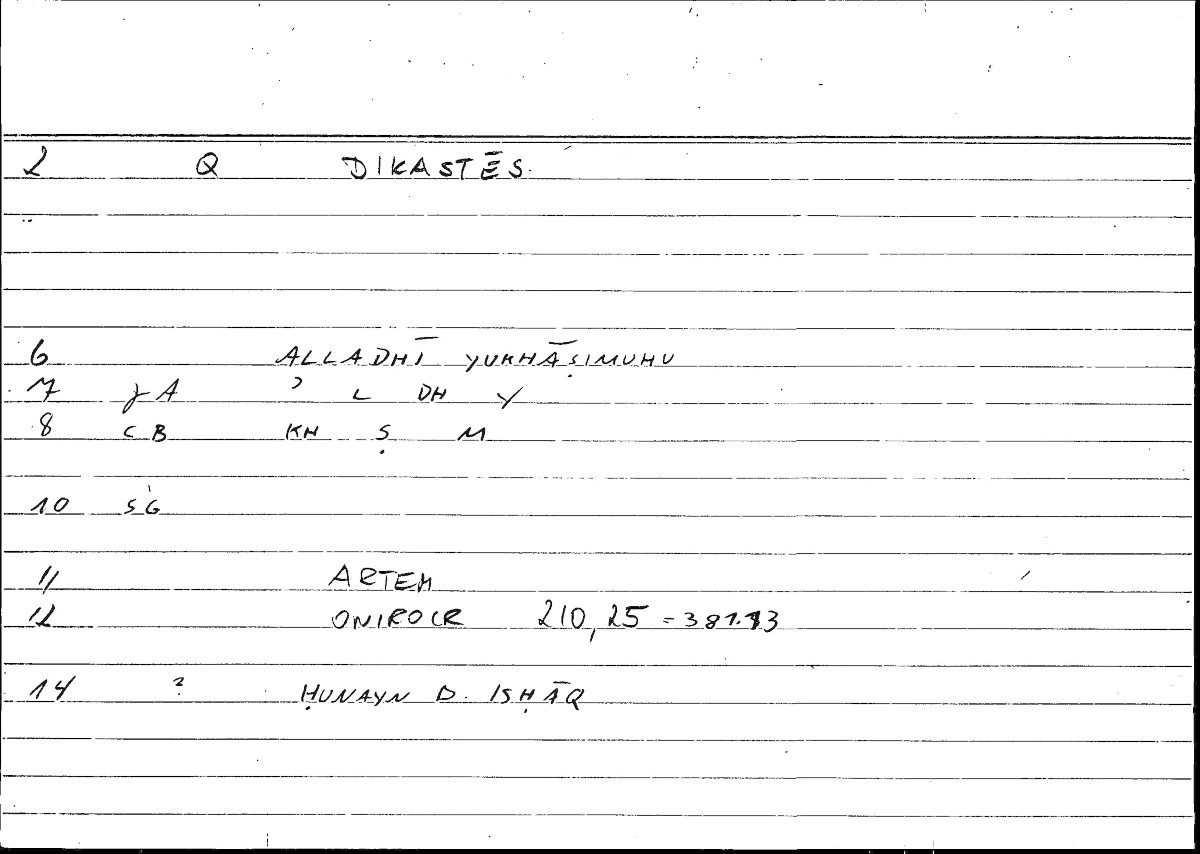 2 Q DIKASTĒS.
6 ALLADHĪ YUKHĀṢIMUHU
7 A ʾ L DH Y
8 CB KH Ṣ M
10 SG
11 ARTEM
12 ONIROCR 210,25 =
14 ? ḤUNAYN B. ISḤĀQ